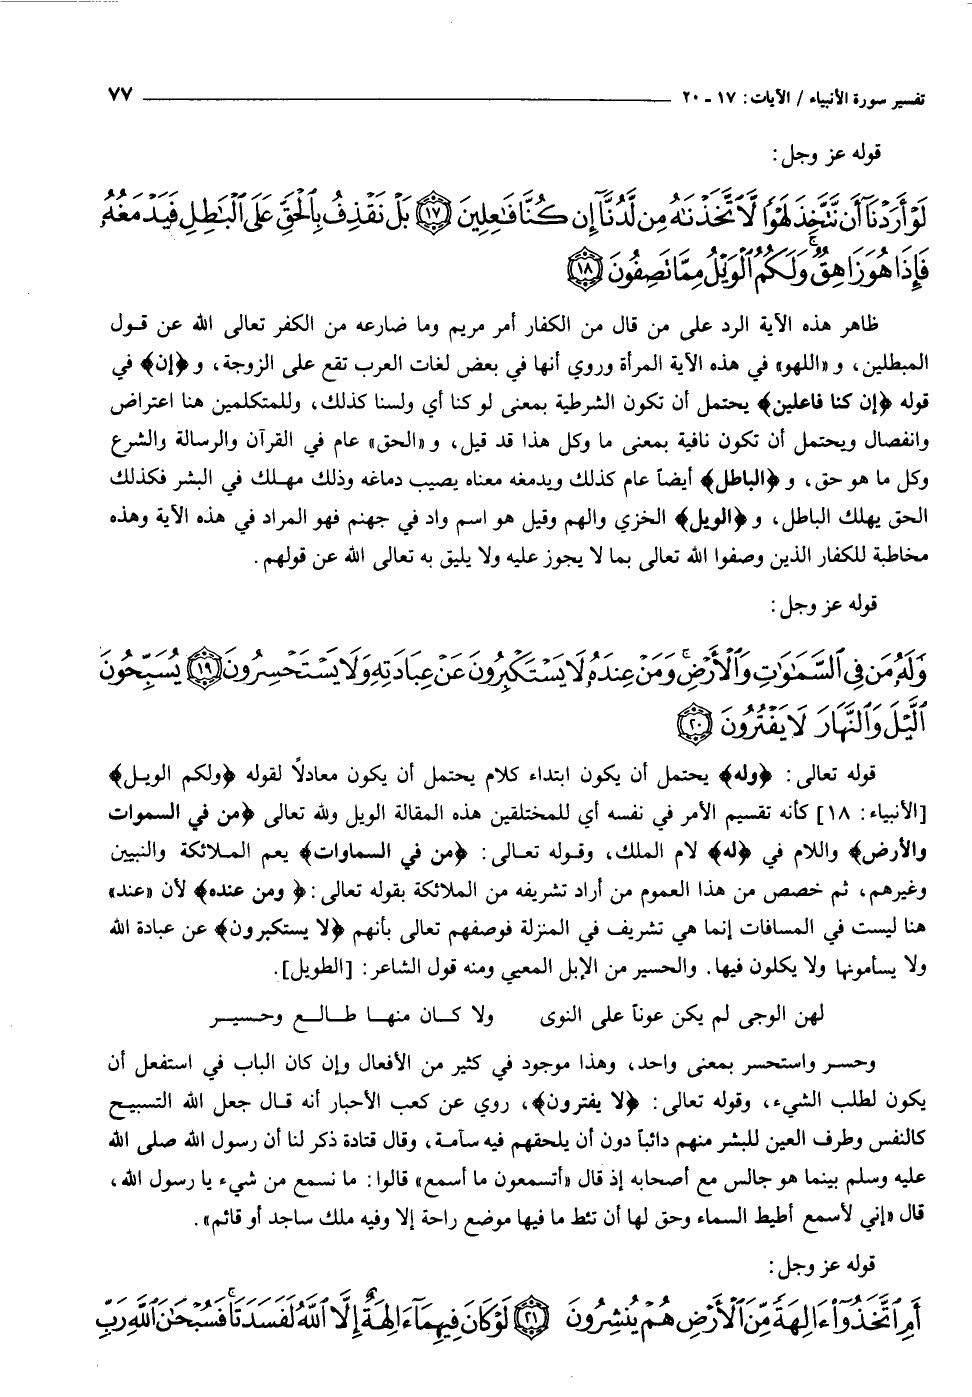 تفسير سورة الأنبياء / الآيات: ١٧ - ٢٠ ٧٧
قوله عز وجل:
لَوْ أَرَدْنَآ أَن نَّتَّخِذَ لَهْوًا لَّاتَّخَذْنَاهُ مِن لَّدُنَّآ إِن كُنَّا فَاعِلِينَ ﴿١٧﴾ بَلْ نَقْذِفُ بِالْحَقِّ عَلَى الْبَاطِلِ فَيَدْمَغُهُ
فَإِذَا هُوَ زَاهِقٌ ۚ وَلَكُمُ الْوَيْلُ مِمَّا تَصِفُونَ ﴿١٨﴾
ظاهر هذه الآية الرد على من قال من الكفار أمر مريم وما ضارعه من الكفر تعالى الله عن قول
المبطلين، و «اللهو» في هذه الآية المرأة وروي أنها في بعض لغات العرب تقع على الزوجة، و ﴿إن﴾ في
قوله ﴿إن كنا فاعلين﴾ يحتمل أن تكون الشرطية بمعنى لو كنا أي ولسنا كذلك، وللمتكلمين هنا اعتراض
وانفصال ويحتمل أن تكون نافية بمعنى ما وكل هذا قد قيل، و «الحق» عام في القرآن والرسالة والشرع
وكل ما هو حق، و ﴿الباطل﴾ أيضاً عام كذلك ويدمغه معناه يصيب دماغه وذلك مهلك في البشر فكذلك
الحق يهلك الباطل، و ﴿الويل﴾ الخزي والهم وقيل هو اسم واد في جهنم فهو المراد في هذه الآية وهذه
مخاطبة للكفار الذين وصفوا الله تعالى بما لا يجوز عليه ولا يليق به تعالى الله عن قولهم.
قوله عز وجل:
وَلَهُ مَن فِي السَّمَاوَاتِ وَالْأَرْضِ ۚ وَمَنْ عِندَهُ لَا يَسْتَكْبِرُونَ عَنْ عِبَادَتِهِ وَلَا يَسْتَحْسِرُونَ ﴿١٩﴾ يُسَبِّحُونَ
الَّيْلَ وَالنَّهَارَ لَا يَفْتُرُونَ ﴿٢٠﴾
قوله تعالى: ﴿وله﴾ يحتمل أن يكون ابتداء كلام يحتمل أن يكون معادلاً لقوله ﴿ولكم الويل﴾
[الأنبياء: ١٨] كأنه تقسيم الأمر في نفسه أي للمختلقين هذه المقالة الويل ولله تعالى ﴿من في السموات
والأرض﴾ واللام في ﴿له﴾ لام الملك، وقوله تعالى: ﴿من في السماوات﴾ يعم الملائكة والنبيين
وغيرهم، ثم خصص من هذا العموم من أراد تشريفه من الملائكة بقوله تعالى: ﴿ومن عنده﴾ لأن «عند»
هنا ليست في المسافات إنما هي تشريف في المنزلة فوصفهم تعالى بأنهم ﴿لا يستكبرون﴾ عن عبادة الله
ولا يسأمونها ولا يكلون فيها. والحسير من الإبل المعيي ومنه قول الشاعر: [الطويل].
لهن الوجى لم يكن عوناً على النوى ولا كان منها طالع وحسير
وحسر واستحسر بمعنى واحد، وهذا موجود في كثير من الأفعال وإن كان الباب في استفعل أن
يكون لطلب الشيء، وقوله تعالى: ﴿لا يفترون﴾، روي عن كعب الأحبار أنه قال جعل الله التسبيح
كالنفس وطرف العين للبشر منهم دائباً دون أن يلحقهم فيه سآمة، وقال قتادة ذكر لنا أن رسول الله صلى الله
عليه وسلم بينما هو جالس مع أصحابه إذ قال «أتسمعون ما أسمع» قالوا: ما نسمع من شيء يا رسول الله،
قال «إني لأسمع أطيط السماء وحق لها أن تئط ما فيها موضع راحة إلا وفيه ملك ساجد أو قائم».
قوله عز وجل:
أَمِ اتَّخَذُوٓا۟ ءَالِهَةً مِّنَ الْأَرْضِ هُمْ يُنشِرُونَ ﴿٢١﴾ لَوْ كَانَ فِيهِمَآ ءَالِهَةٌ إِلَّا اللَّهُ لَفَسَدَتَا ۚ فَسُبْحَانَ اللَّهِ رَبِّ